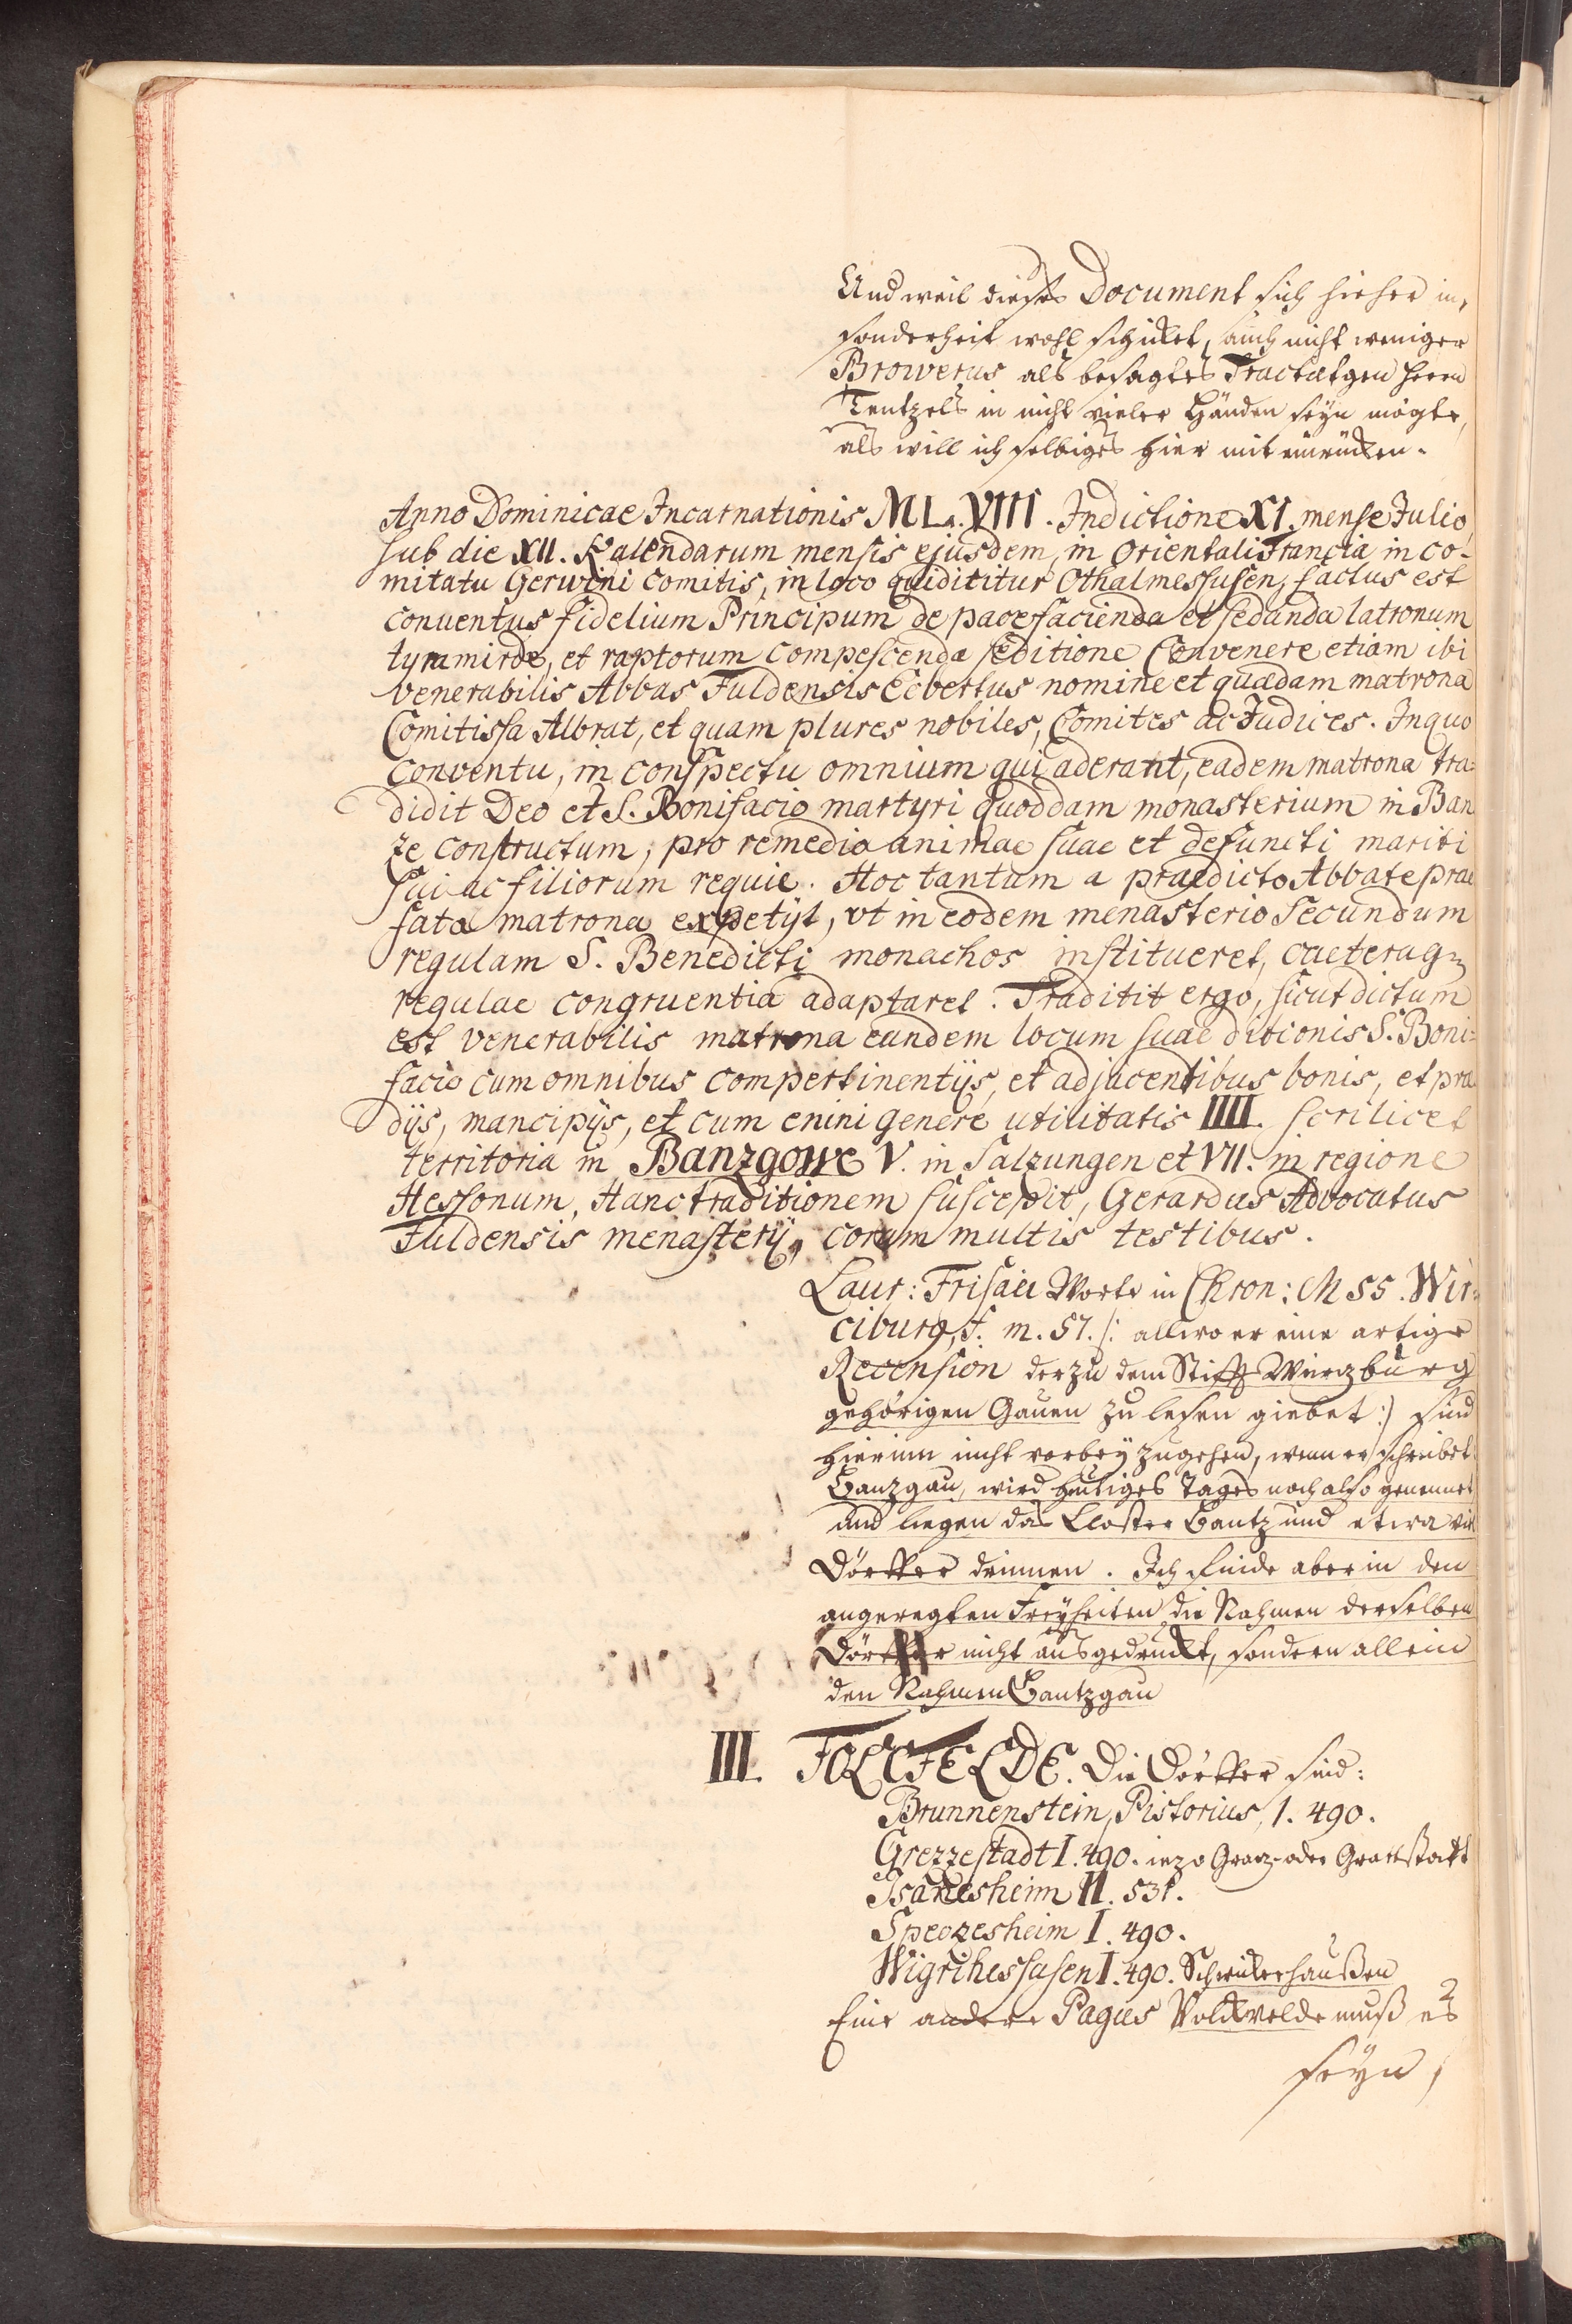 Und weil dieses Document sich hieher in,
sonderheit wohl schicket, auch nicht weniger
Browerus als besagtes Tractætgen Herrn
Tentzels in nicht vieler Händen seyn mögte,
als will ich selbiges hier mit einrücken.
Anno Dominicae Incarnationis MLVIII. Indictione XI. mense Julio
sub die XII. Kalendarum mensis ejusdem, in orientali Francia in co-
mitatu Gerwini comitis, in loco qui dicitur Othalmeshusen, factus est
conuentus fidelium Principum de pace facienda et sedanda latronum
tyramirde, et raptorum compescenda seditione Convenere etiam ibi
venerabilis Abbas Fuldensis Ecbertus nomine et quædam matrona
Comitissa Albrat, et quam plures nobiles, Comites ac Judices. In quo
conventu, in conspectu omnium qui aderant, eadem matrona tra-
didit Deo et S. Bonifacio martyri quoddam monasterium in Ban
ze constructum, pro remedio animae suae et defuncti mariti
sui ac filiorum requie. Hoc tantum a praedicto Abbate prae
fata matrona expetijt, vt in eodem menasterio secundum
regulam S. Benedicti monachos institueret, caeteraq
regulae congruentia adaptaret. Traditit ergo, sicut dictum
est venerabilis matrona eandem locum suae ditionis S. Boni-
facio cum omnibus compertinentijs, et adjacentibus bonis, et præ
dijs, mancipijs, et cum enini genere utilitatis IIII. scrilicet
territoria in Banzgowe V. in Salzungen et VII. in regione
Hessonum, Hanc traditionem suscepit, Gerardus Advocatus
Fuldensis menasterij, coram multis testibus.
Laur: Frisaei Worte in Chron: MSS. Wir-
ciburg, f. m. 57. /: allwo er eine artige
Recension der zu dem Stifft Würzburg
gehörigen Gauen zu lesen giebet :) sind
hierinn nicht vorbey zugehen, wenn er schreibet
Banzgau, wird heutiges Tages noch also genennet
und liegen das Closter Bantz und etwa vie
Dörffer drinnen. Ich finde aber in den
angeregten Freyheiten die Nahmen derselben
Dörffer nicht ausgedruckt, sondern allein
den Nahmen Bantzgau
III. FOLCFELDE. Die Dörffer sind:
Brunnenstein, Pistorius, I. 490.
Grezzestadt I. 490. iezo Graz- oder Grattstatt
Isanesheim II. 531.
Speozesheim I. 490.
Wigrihessusen I. 490. Schwickershaußen
Eine andere Pagus Volckvelde muß es
seyn,